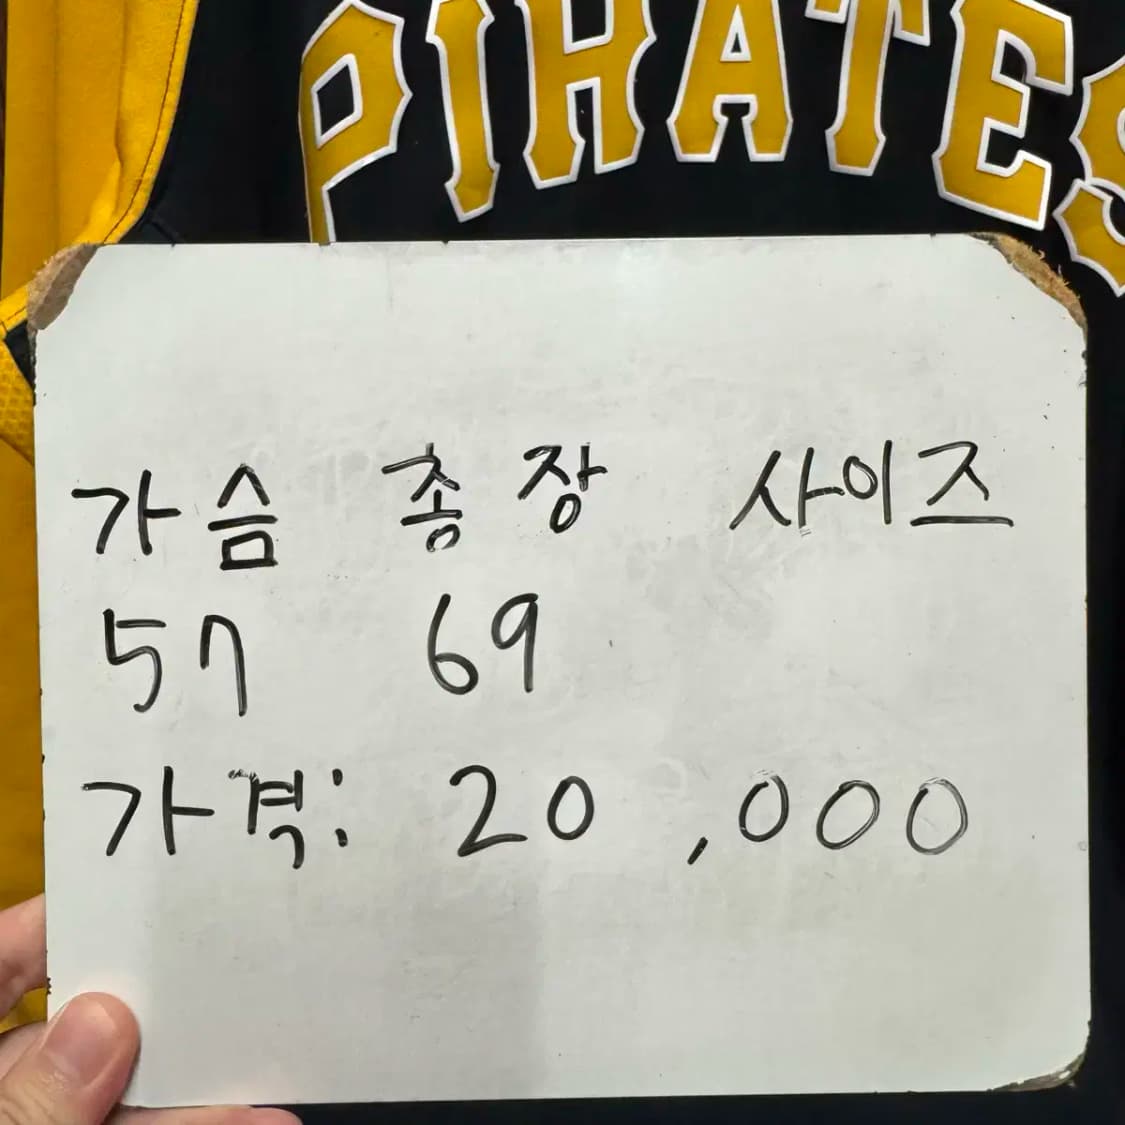 PIRATES
가슴 총장 사이즈
57 69
가격: 20,000